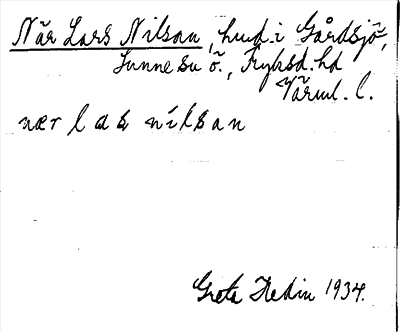 När Lars Nilsan, hmd. i Gårdsjö,
Sunne sn ö., Fryksd. hd
Värml. l.
nær las nilsan
Greta Hedin 1934.